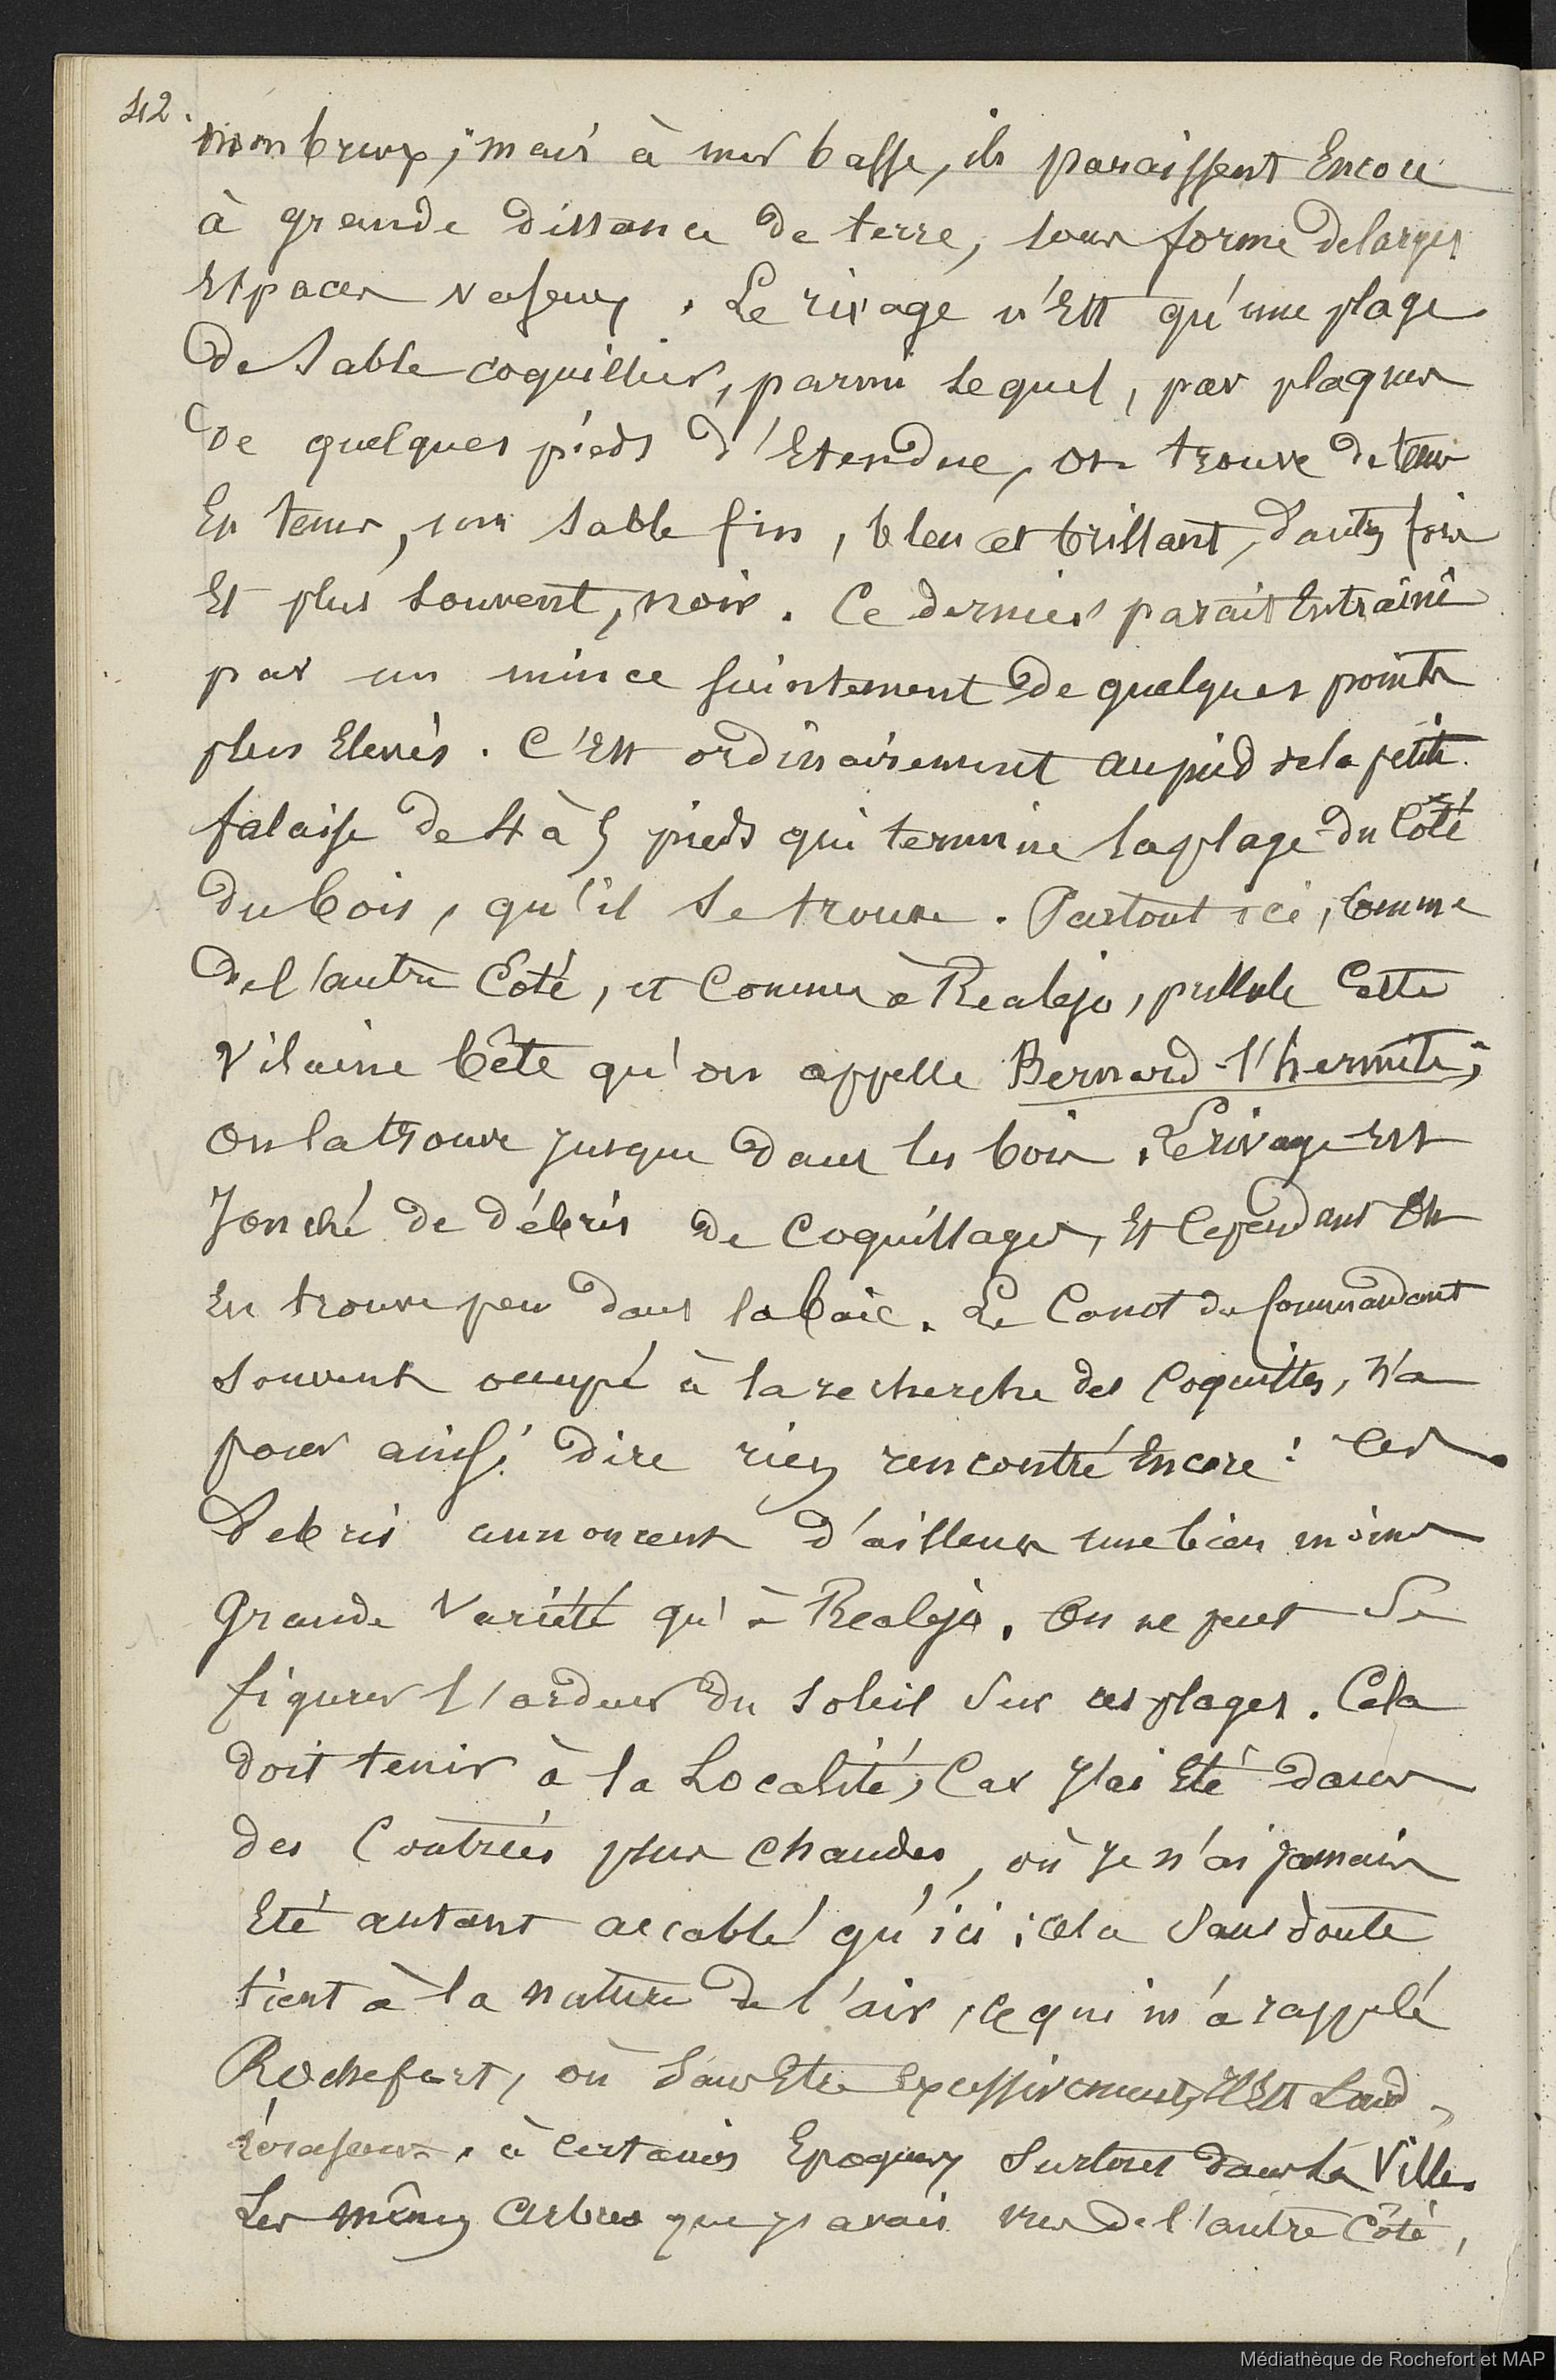 42.
nombreux; mais à mer basse, ils paraissent Encore
à grande distance de terre, sous forme de larges
Espaces vaseux. Le rivage n'Est qu'une plage
de sable coquillier, parmi lequel, par plaques
de quelques pieds d'Etendue, on trouve de tems
En tems, un sable fin, bleu et brillant, d'autres fois
Et plus souvent, noir. Ce dernier parait Entrainé
par un mince suintement de quelques points
plus Elevés. C'Est ordinairement au pied de la petite
falaise de 4 à 5 pieds qui termine la plage du Côté
du bois, qu'il se trouve. Partout ici, Comme
de l'autre Coté, et Comme à Realejo, pullule Cette
Vilaine bête qu'on appelle Bernard-l'hermite;
on la trouve jusque dans les bois. Le rivage Est
Jonché de débris de Coquillages, Et Cependant On
En trouve peu dans la baie. Le Canot du Commandant
souvent occupé à la recherche des Coquilles, n'a
pour ainsi dire rien rencontré Encore: Ces
Debris annoncent d'ailleurs une bien moins
Grande Variété qu'à Realejo. On ne peut Se
figurer l'ardeur du soleil sur ces plages. Cela
doit tenir à la Localité, Car J'ai Eté dans
des Contrées plus Chaudes, où Je n'ai jamais
Eté autant accablé qu'ici; cela Sans doute
tient à la nature de l'air, ce qui m'a rappelé
Rochefort, où sans Etre Excessivement, Est Lourd,
à Certaines Epoques Surtout dans la Ville.
Les mêmes Arbres que J'avais vus de l'autre Côté,
Médiathèque de Rochefort et MAP